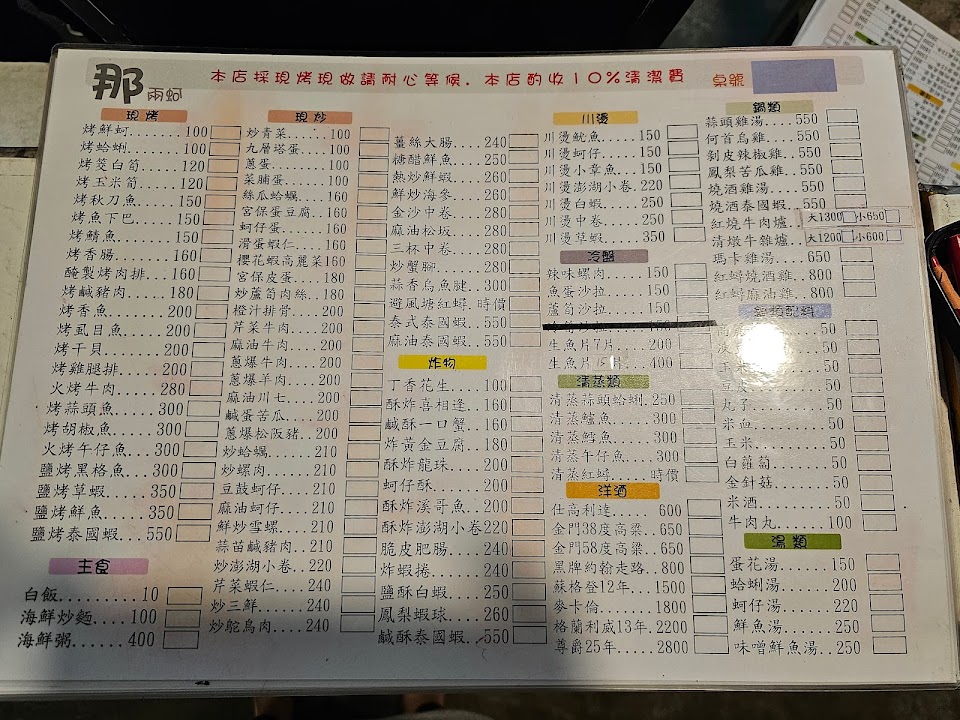 那
兩蚵
本店採現烤現做請耐心等候.本店酌收10%清潔費
桌號
現烤
烤鮮蚵.......100
烤蛤蜊.......100
烤筊白筍....120
烤玉米筍....120
烤秋刀魚....150
烤魚下巴....150
烤鯖魚.......150
烤香腸.......160
醃製烤肉排..160
烤鹹豬肉....180
烤香魚.......200
烤虱目魚....200
烤干貝.......200
烤雞腿排....200
火烤牛肉....280
烤蒜頭魚....300
烤胡椒魚....300
火烤午仔魚...300
鹽烤黑格魚...300
鹽烤草蝦.....350
鹽烤鮮魚.....350
鹽烤泰國蝦...550
主食
白飯..........10
海鮮炒麵....100
海鮮粥......400
現炒
炒青菜....100
九層塔蛋...100
蔥蛋......100
菜脯蛋....100
絲瓜蛤蠣...160
宮保蛋豆腐..160
蚵仔蛋....160
滑蛋蝦仁...160
櫻花蝦高麗菜160
宮保皮蛋....180
炒蘆筍肉絲..180
橙汁排骨....200
芹菜牛肉....200
麻油牛肉....200
蔥爆牛肉....200
蔥爆羊肉....200
麻油川七....200
鹹蛋苦瓜....200
蔥爆松阪豬..200
炒蛤蠣......210
炒螺肉......210
豆鼓蚵仔....210
麻油蚵仔....210
鮮炒雪螺....210
蒜苗鹹豬肉..210
炒澎湖小卷..220
芹菜蝦仁....240
炒三鮮......240
炒鴕鳥肉....240
薑絲大腸....240
糖醋鮮魚....250
熱炒鮮蝦....260
鮮炒海參....260
金沙中卷....280
麻油松坂....280
三杯中卷....280
炒蟹腳......280
蒜香烏魚腱..300
避風塘紅蟳.時價
泰式泰國蝦..550
麻油泰國蝦..550
炸物
丁香花生....100
酥炸喜相逢..160
鹹酥一口蟹..160
炸黃金豆腐..180
酥炸龍珠....200
蚵仔酥......200
酥炸溪哥魚..200
酥炸澎湖小卷220
脆皮肥腸....240
炸蝦捲......240
鹽酥白蝦....250
鳳梨蝦球....260
鹹酥泰國蝦..550
川燙
川燙魷魚....150
川燙蚵仔....150
川燙小章魚..150
川燙澎湖小卷.220
川燙白蝦....250
川燙中卷....250
川燙草蝦....350
冷盤
辣味螺肉....150
魚蛋沙拉....150
蘆筍沙拉....150
生魚片7片...200
生魚片15片..400
清蒸類
清蒸蒜頭蛤蜊.250
清蒸鱸魚....300
清蒸鱈魚....300
清蒸午仔魚..300
清蒸紅蟳....時價
洋酒
仕高利達....600
金門38度高梁..650
金門58度高梁..650
黑牌約翰走路..800
蘇格登12年..1500
麥卡倫......1800
格蘭利威13年.2200
尊爵25年....2800
鍋類
蒜頭雞湯...550
何首烏雞...550
剝皮辣椒雞..550
鳳梨苦瓜雞..550
燒酒雞湯...550
燒酒泰國蝦..550
紅燒牛肉爐..大1300 小650
清燉牛雜爐..大1200 小600
瑪卡雞湯....650
紅蟳燒酒雞..800
紅蟳麻油雞..800
鍋類配料
50
50
50
50
丸子......50
米血......50
玉米......50
白蘿蔔....50
金針菇....50
米酒......50
牛肉丸....100
湯類
蛋花湯....150
蛤蜊湯....200
蚵仔湯....220
鮮魚湯....250
味噌鮮魚湯..250